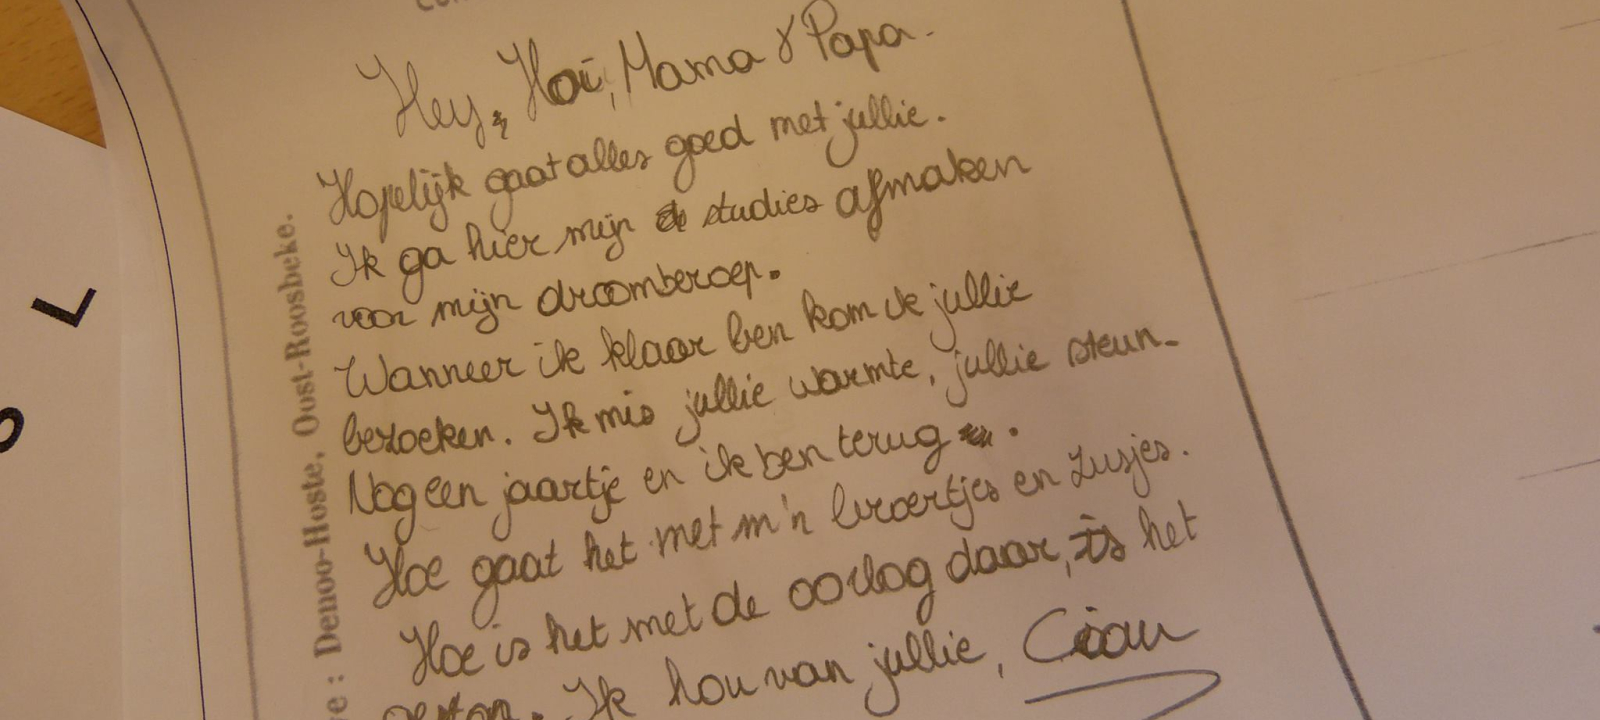 Hey, Hoi, Mama & Papa.
Hopelijk gaat alles goed met jullie.
Ik ga hier mijn studies afmaken
voor mijn droomberoep.
Wanneer ik klaar ben kom ik jullie
bezoeken. Ik mis jullie warmte, jullie steun.
Nog een jaartje en ik ben terug.
Hoe gaat het met m'n broertjes en zusjes.
Hoe is het met de oorlog daar, is het
Ik hou van jullie, Ciau
: Denoo-Hoste, Oost-Roosbeke.
L